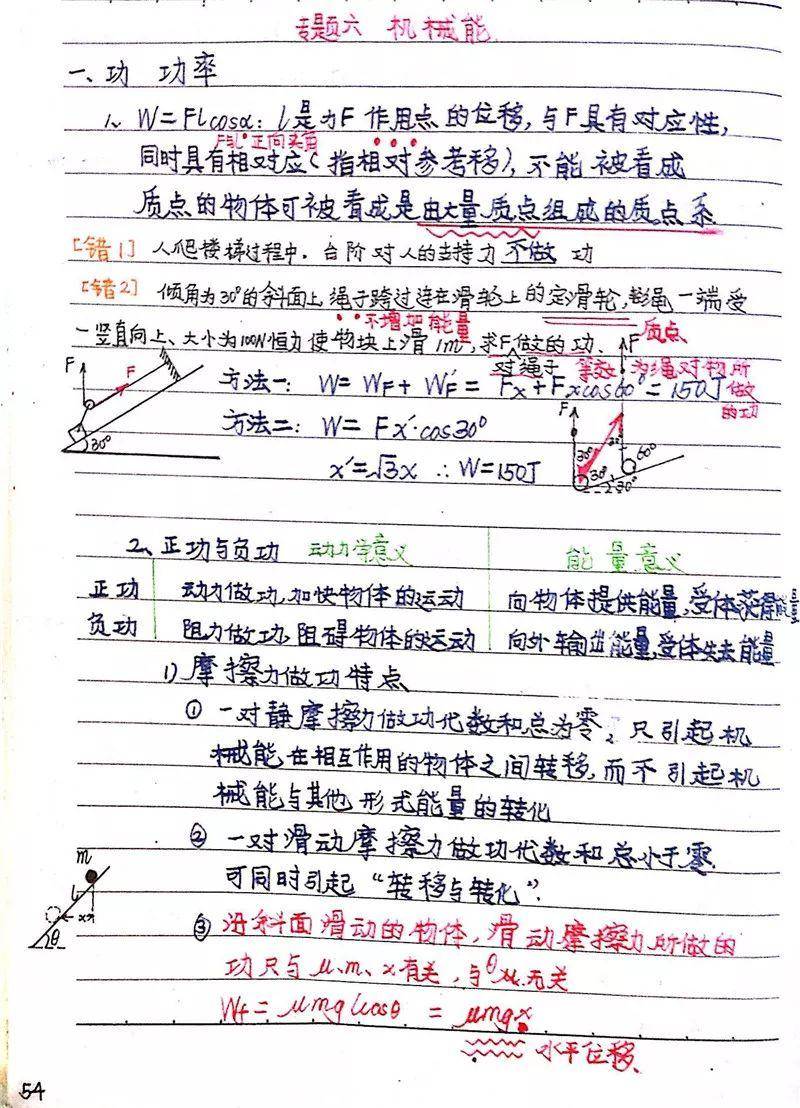 专题六 机械能
一、功 功率
1、W=Flcosα: l是力F作用点的位移,与F具有对应性,
F与l正向夹角
同时具有相对应(指相对参考移),不能被看成
质点的物体可被看成是由大量质点组成的质点系
[错1] 人爬楼梯过程中,台阶对人的支持力不做功
[错2] 倾角为30°的斜面上,绳子跨过连在滑轮上的定滑轮,绳一端受
不增加能量 质点
一竖直向上、大小为100N恒力使物块上滑1m,求F做的功.
对绳子 等效 为绳对物所做的功
方法一: W=W_F+W_F'=Fx+Fxcos60°=150J
方法二: W=Fx'·cos30°
x'=√3x ∴W=150J
F F 30°
F F 30° 30° 60° 30°
2、正功与负功 动力学意义 能量意义
正功 动力做功,加快物体的运动 向物体提供能量,受体获得能量
负功 阻力做功,阻碍物体的运动 向外输出能量,受体失去能量
1)摩擦力做功特点
① 一对静摩擦力做功代数和总为零,只引起机
械能在相互作用的物体之间转移,而不引起机
械能与其他形式能量的转化
② 一对滑动摩擦力做功代数和总小于零.
可同时引起“转移与转化”.
m l x θ
③ 沿斜面滑动的物体,滑动摩擦力所做的
功只与μ、m、x有关,与θ 无关
Wf=μmglcosθ=μmgx
水平位移.
54